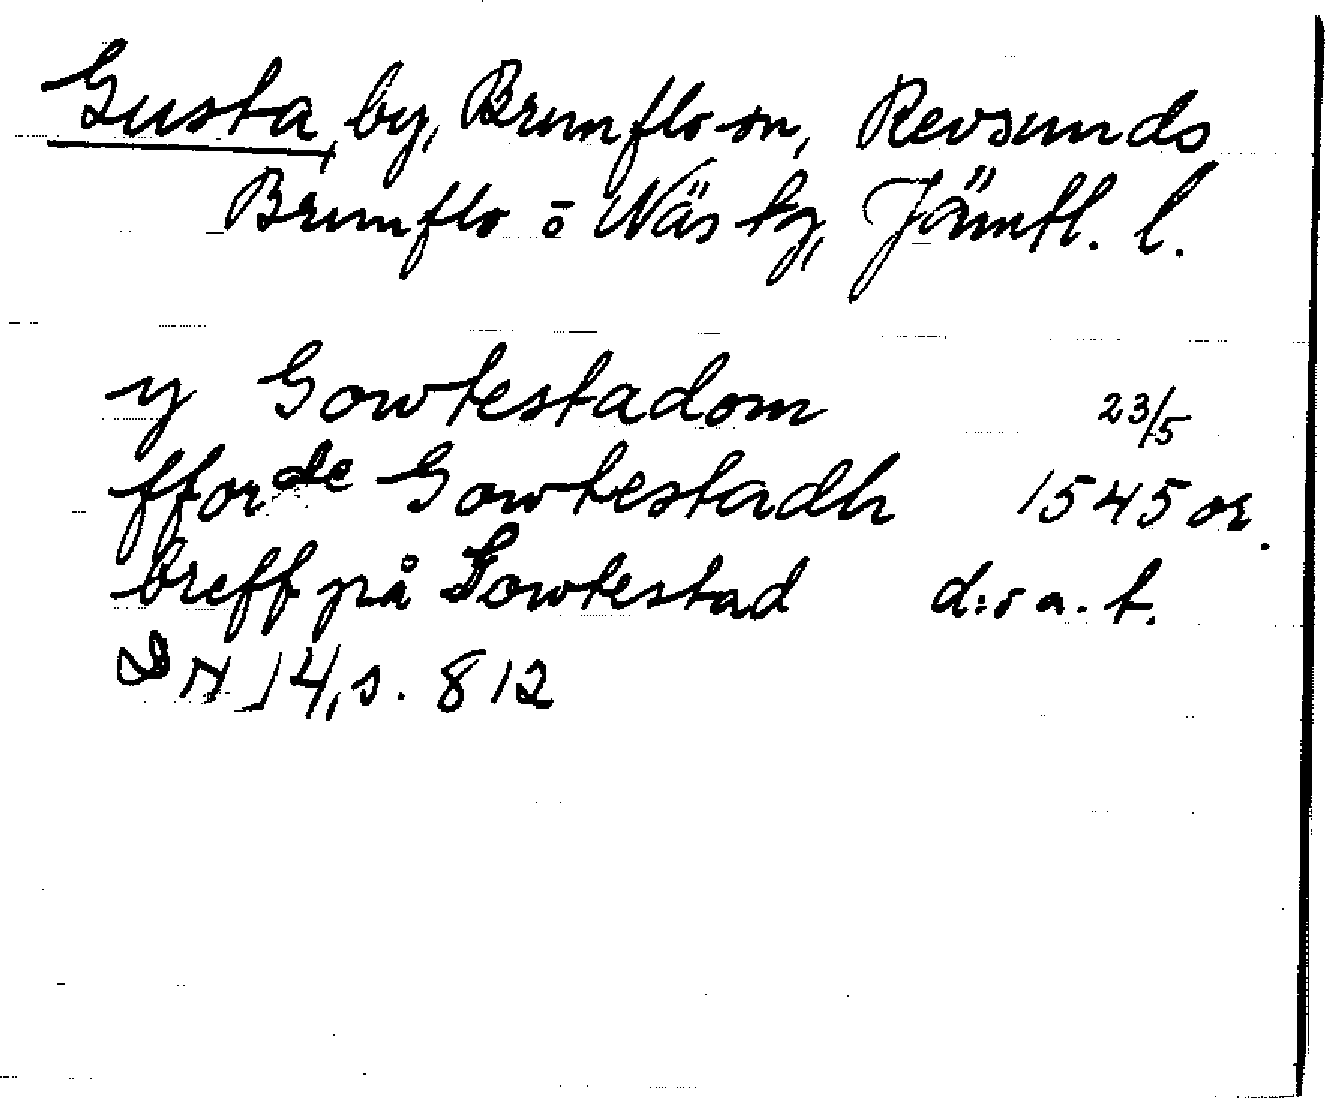 Gusta, by, Brunflo sn, Revsunds
Brunflo o Näs tg, Jämtl. l.
y Gowtestadom 23/5
fforde Gowtestadh 1545 or.
breff på Gowtestad d:o a. t.
DN 14, s. 812